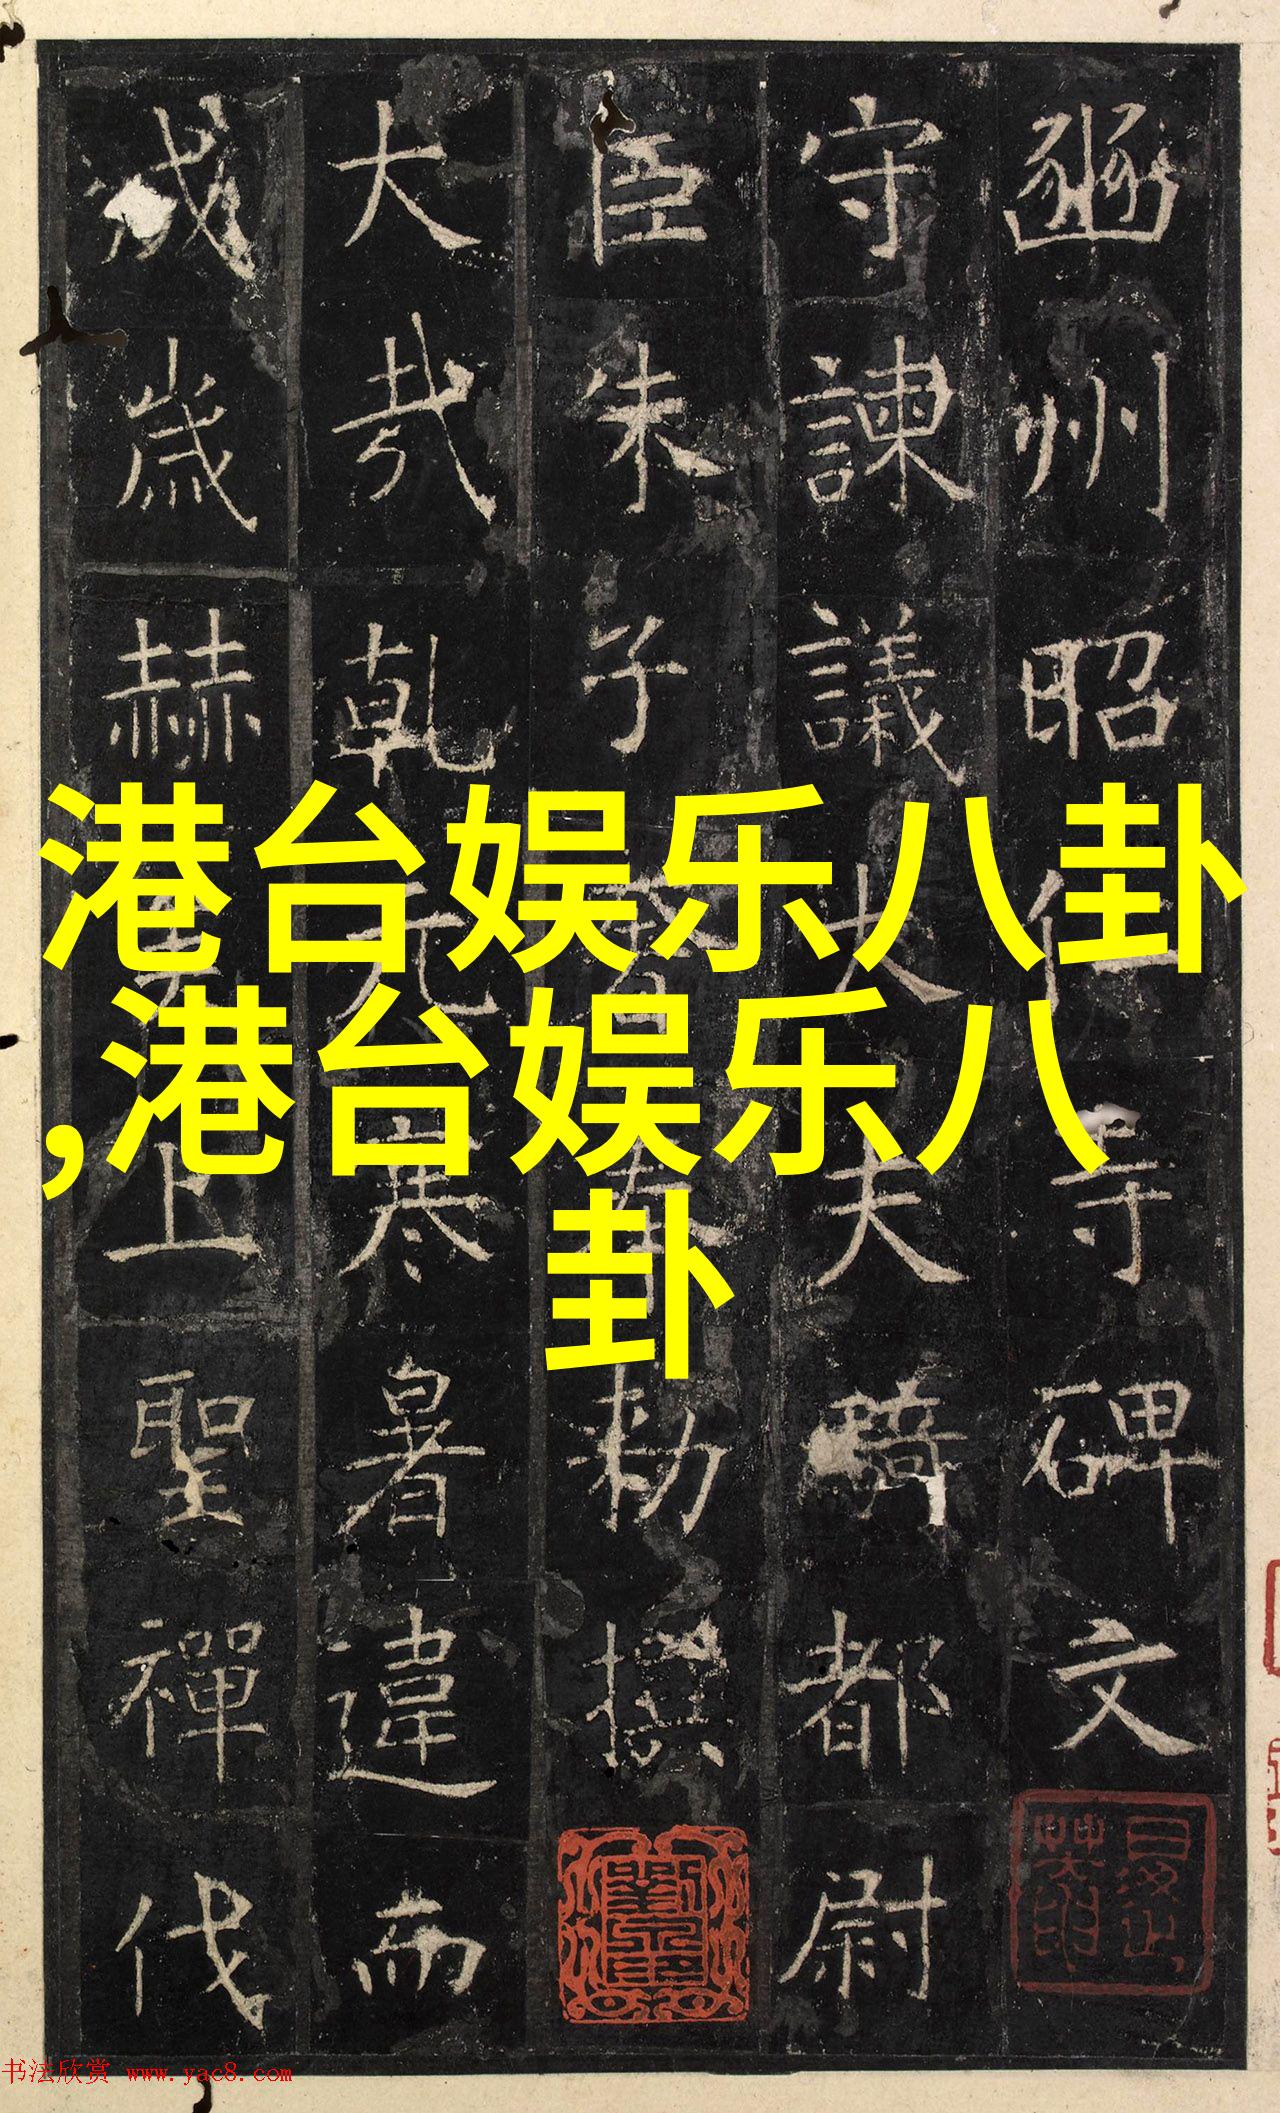 豳州昭仁寺碑文
守諫議大夫騎都尉
臣朱子奉勅撰
大哉乾元寒暑違而
成歲赫上聖禪代
港台娱乐八卦
,港台娱乐八
卦
书法欣赏 www.yac8.com